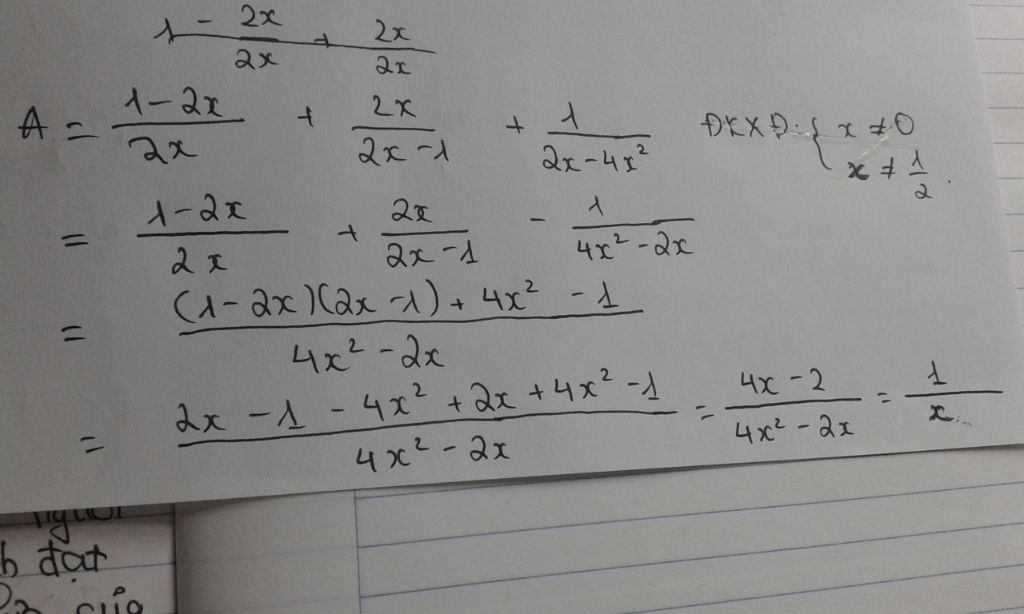 1 - 2x/2x + 2x/2x
A = (1-2x)/(2x) + (2x)/(2x-1) + 1/(2x-4x²) ĐKXĐ: { x ≠ 0
x ≠ 1/2.
= (1-2x)/(2x) + (2x)/(2x-1) - 1/(4x²-2x)
= ((1-2x)(2x-1) + 4x² - 1)/(4x²-2x)
= (2x - 1 - 4x² + 2x + 4x² - 1)/(4x²-2x) = (4x-2)/(4x²-2x) = 1/x
người
b đạt
của